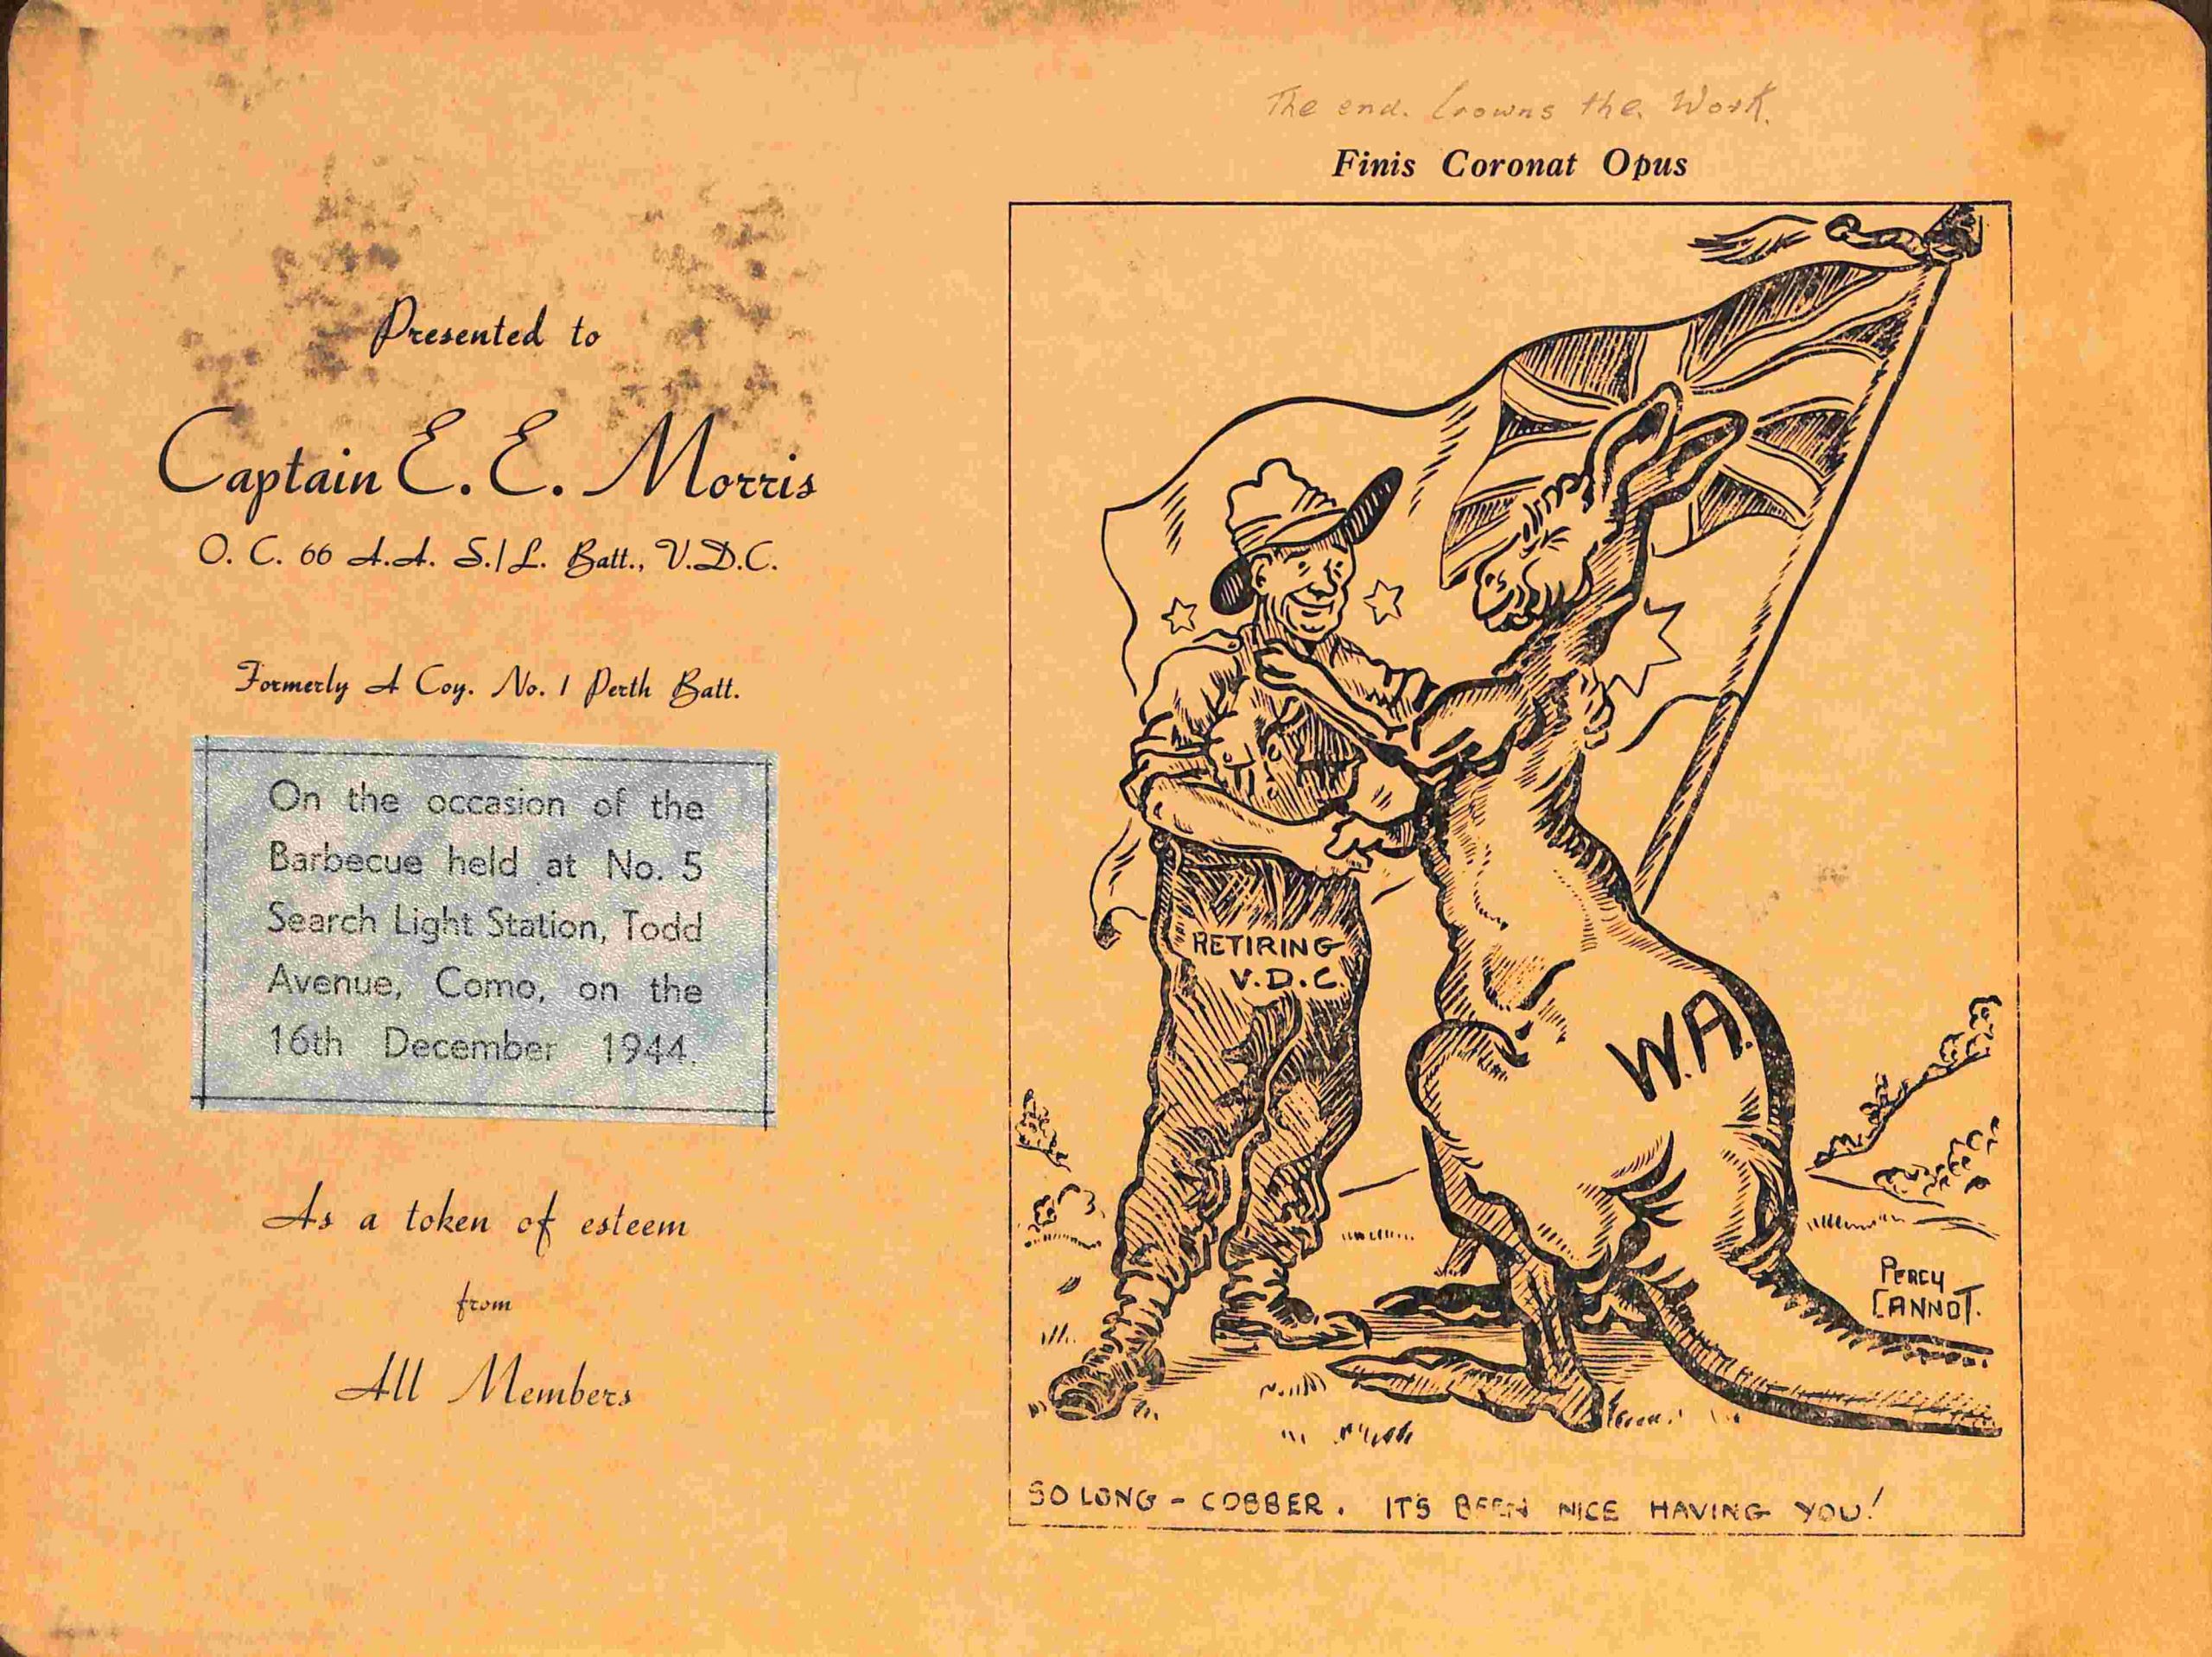 Presented to
Captain E. E. Morris
O. C. 66 A.A. S./L. Batt., V.D.C.
Formerly A Coy. No. 1 Perth Batt.
On the occasion of the
Barbecue held at No. 5
Search Light Station, Todd
Avenue, Como, on the
16th December 1944.
As a token of esteem
from
All Members
The end. Crowns the. Work.
Finis Coronat Opus
RETIRING
V.D.C.
W.A.
PERCY
CANNOT.
SO LONG - COBBER. IT'S BEEN NICE HAVING YOU!